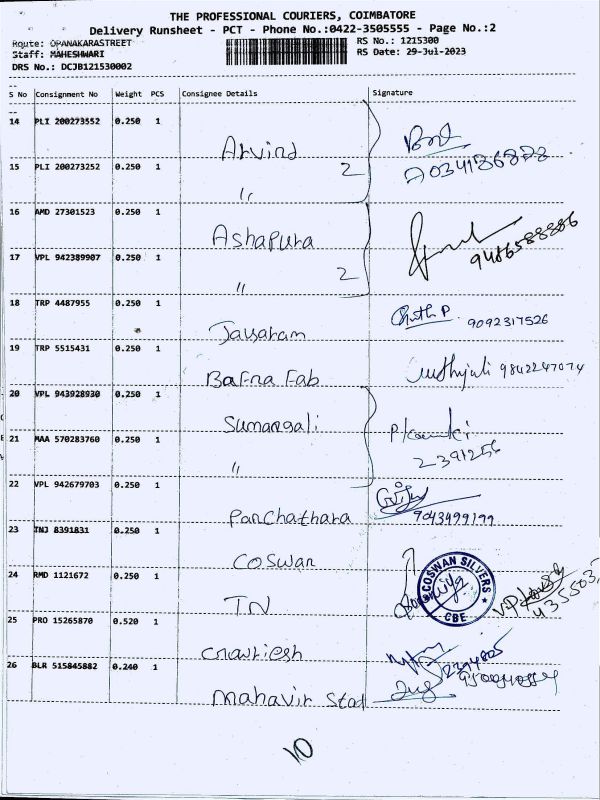 THE PROFESSIONAL COURIERS, COIMBATORE
Delivery Runsheet - PCT - Phone No.:0422-3505555 - Page No.:2
Route: OPANAKARASTREET
RS No.: 1215300
Staff: MAHESHWARI
RS Date: 29-Jul-2023
DRS No.: DCJB121530002
S No Consignment No Weight PCS Consignee Details Signature
14 PLI 200273552 0.250 1
Arvind
15 PLI 200273252 0.250 1 2
"
16 AMD 27301523 0.250 1
Ashapura
9486588886
17 VPL 942389907 0.250 1
" 2
18 TRP 4487955 0.250 1
9092317526
Jayaram
19 TRP 5515431 0.250 1
9842247074
Bafna Fab
20 VPL 943928930 0.250 1
Sumangali
21 MAA 570283760 0.250 1
"
2391256
22 VPL 942679703 0.250 1
Panchathara 9043499199
23 TNJ 8391831 0.250 1
COSWAN
24 RMD 1121672 0.250 1
COSWAN SILVERS
CBE
TN
25 PRO 15265870 0.520 1
26 BLR 515845882 0.240 1
Mahavir Stad
10